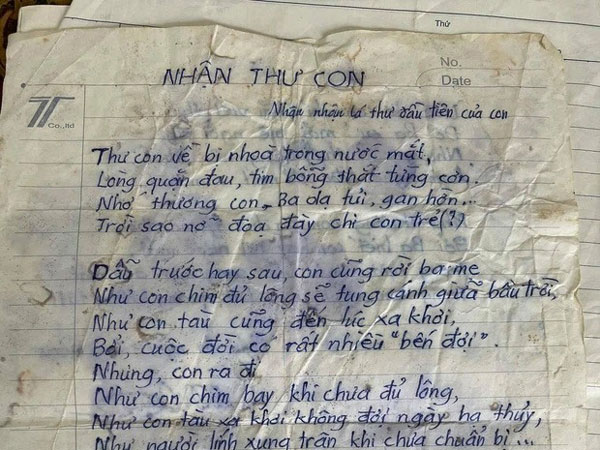 Thứ
No.
Date
Co.,ltd
NHẬN THƯ CON
Nhậm nhận lá thư đầu tiên của con
Thư con về bị nhoà trong nước mắt,
Lòng quặn đau, tim bỗng thắt từng cơn.
Nhớ thương con - Ba dạ tủi, gan hờn...
Trời sao nỡ đoạ đày chi con trẻ(?)
Dẫu trước hay sau, con cũng rời ba mẹ
Như con chim đủ lông sẽ tung cánh giữa bầu trời,
Như con tàu cũng đến lúc xa khơi,
Bởi, cuộc đời có rất nhiều "bến đợi".
Nhưng, con ra đi
Như con chim bay khi chưa đủ lông,
Như con tàu xa khơi không đợi ngày hạ thủy,
Như người lính xung trận khi chưa chuẩn bị ...